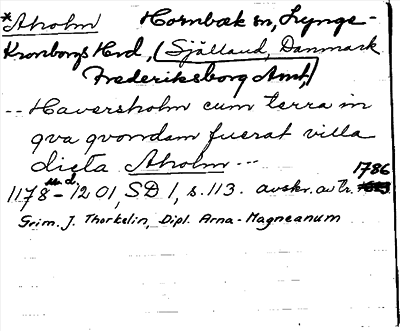 *Aholm Hornbæk sn, Lynge-
Kronborgs Hrd, (Sjælland, Danmark
Frederiksborg Amt,)
-- Haversholm cum terra in
qva qvondam fuerat villa
dicta Aholm ---
1178 - 1201, SD 1, s. 113. avskr. av tr. 1786
Grim. J. Thorkelin, Dipl. Arna-Magneanum